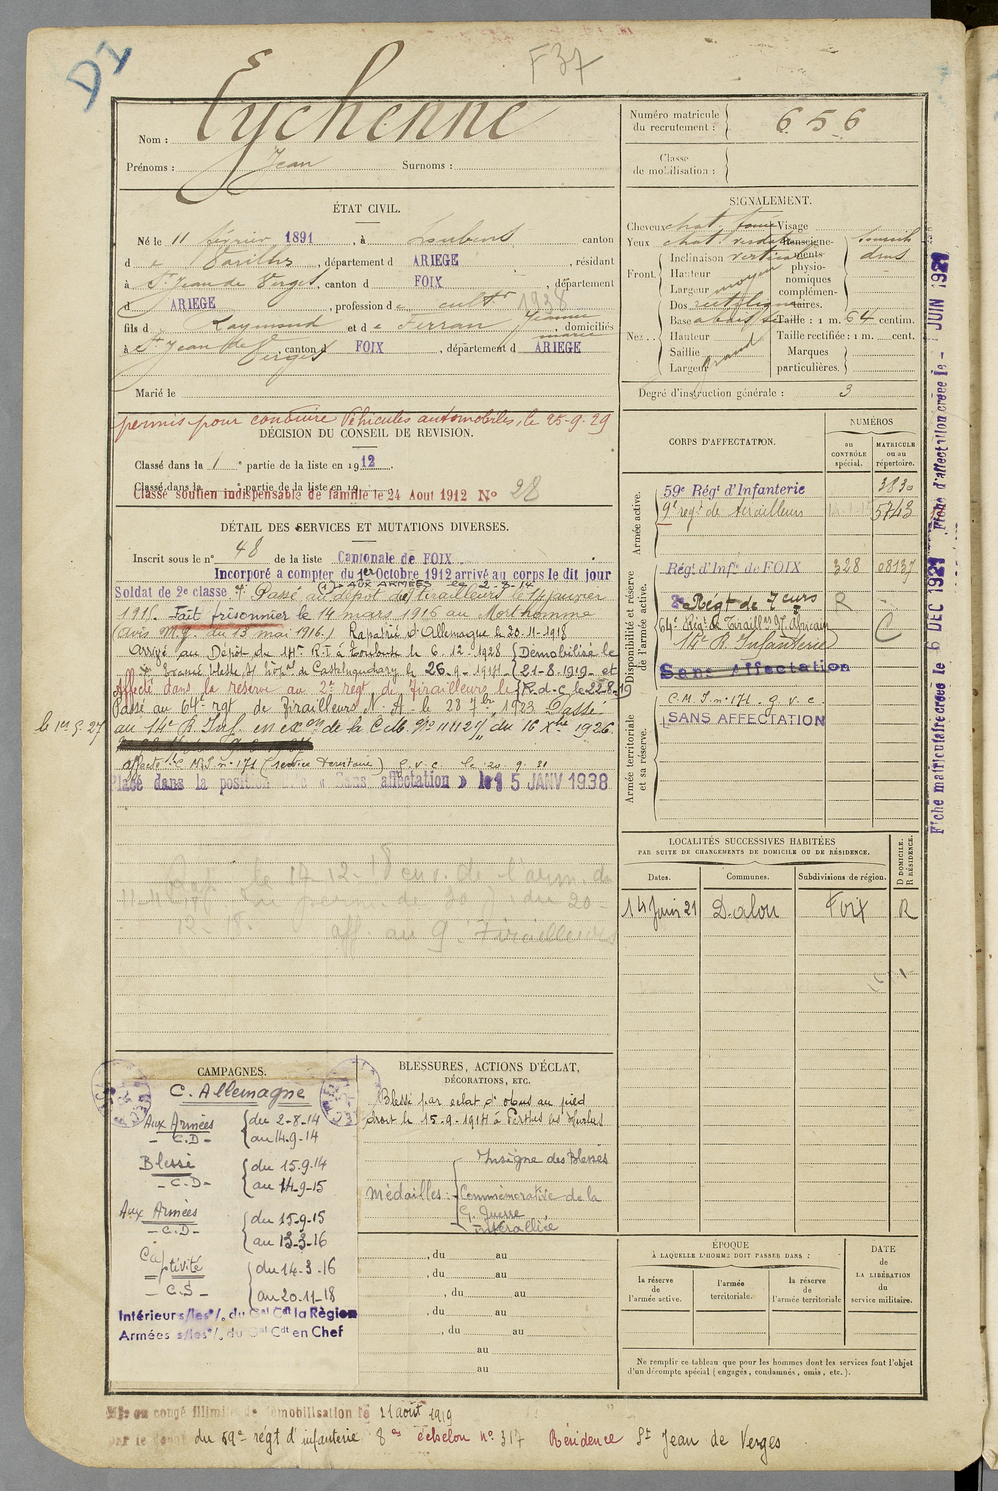 D1
F37
Nom : Eychenne
Prénoms : Jean Surnoms :
Numéro matricule du recrutement : 656
Classe de mobilisation :
ÉTAT CIVIL.
Né le 11 février 1891, à Loubens canton
d e Varilhes, département d ARIEGE, résidant
à St Jean de Verges, canton d FOIX, département
d ARIEGE, profession de cultr 1938
fils de Raymond et de Ferran Jeanne marie, domiciliés
à St Jean de Verges, canton d FOIX, département d ARIEGE
Marié le
SIGNALEMENT.
Cheveux chat foncé Visage
Yeux chat verdâtre Renseignements physionomiques complémentaires. sourcils drus
Front. Inclinaison verticale
Hauteur
Largeur moyen
Nez.. Dos rectiligne
Base abaissée Taille : 1 m. 64 centim.
Hauteur Taille rectifiée : 1 m. cent.
Saillie Marques particulières.
Largeur grand
Degré d'instruction générale : 3
permis pour conduire Véhicules automobiles, le 25-9-29
DÉCISION DU CONSEIL DE REVISION.
Classé dans la 1 e partie de la liste en 1912.
Classé dans la e partie de la liste en 19
Classé soutien indispensable de famille le 24 Aout 1912 No 28
DÉTAIL DES SERVICES ET MUTATIONS DIVERSES.
Inscrit sous le n° 48 de la liste Cantonale de FOIX
Incorporé a compter du 1er Octobre 1912 arrivé au corps le dit jour
Soldat de 2e classe AUX ARMÉES le 2-8-14
Passé au dépôt des tirailleurs le 14 janvier
1916. Fait prisonnier le 14 mars 1916 au Morthomme
(avis M.G. du 13 mai 1916.) Rapatrié d'Allemagne le 20-11-1918
arrivé au Dépôt du R.I à Toulouse le 6-12-1928 (Démobilisé le
de Castelnaudary le 26-9-1914 (21-8-1919 et
affecté dans la réserve au 2e régt de Tirailleurs le R.d.C. le 22-8-19
Passé au 64e rgt de Tirailleurs N. A. le 28 7bre 1923 Passé
le 1er 5.27 au 14e R. Inf. en exon de la C.M. no 11127 du 16 Xbre 1926
affecté C.M.I. n° 171 (service territoire) G.v.c. le 20.9.31
Placé dans la position « Sans affectation » le 15 JANV 1938
le 17-12-18 de l'arm. du
11-11-18 perm. de 30 J. du 20-
12-18. aff au 9e Tirailleurs
CORPS D'AFFECTATION.
NUMÉROS
au CONTRÔLE spécial.
MATRICULE ou au répertoire.
Armée active.
59e Régt d'Infanterie 3830
9e regt de tirailleurs 5743
Disponibilité et réserve de l'armée active.
Régt d'Infie de FOIX 328 08137
2e Régt de Teurs R -
64e Régt de Tiraillrs Nd Africain C
14e R. Infanterie
Sans Affectation
Armée territoriale et sa réserve.
C.M.I. n° 171. g. v. c.
SANS AFFECTATION
LOCALITÉS SUCCESSIVES HABITÉES
PAR SUITE DE CHANGEMENTS DE DOMICILE OU DE RÉSIDENCE.
Dates. Communes. Subdivisions de région. D DOMICILE. R RÉSIDENCE.
14 Juin 21 Dalou Foix R
Fiche matriculaire créée le 6 DEC 1921 Fiche d'affectation créée le - JUIN 1921
CAMPAGNES.
C. Allemagne
Aux Armées - C.D - du 2-8-14 au 14-9-14
Blessé - C.D - du 15.9.14 au 14-9-15
Aux Armées - C.D - du 15-9-15 au 13-3-16
Captivité - C.S - du 14-3-16 au 20-11-18
Intérieur s/les %, du Gal Cdt la Région
Armées s/les %, du Gal Cdt en Chef
BLESSURES, ACTIONS D'ÉCLAT,
DÉCORATIONS, ETC.
Blessé par eclat d'obus au pied
droit le 15-9-1914 à Perthes les Hurlus
médailles : Insigne des Blessés
Commémorative de la
G. Guerre
Interalliée
, du au
, du au
, du au
, du au
, du au
au
au
ÉPOQUE
À LAQUELLE L'HOMME DOIT PASSER DANS :
la réserve de l'armée active.
l'armée territoriale.
la réserve de l'armée territoriale
DATE de LA LIBÉRATION du service militaire.
Ne remplir ce tableau que pour les hommes dont les services font l'objet
d'un décompte spécial (engagés, condamnés, omis, etc.).
Mis en congé illimité de démobilisation le 21 août 1919
par le depôt du 59e régt d'infanterie 8e échelon no 317 Résidence St Jean de Verges